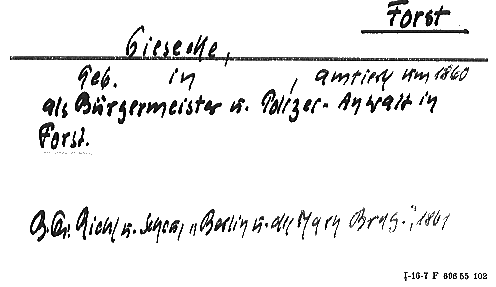 Forst
Giesecke,
Geb. in , amtiert um 1860
als Bürgermeister u. Polizei-Anwalt in
Forst.
B.Qu. Riehl u. Scheu, „Berlin u. die Mark Brdg.", 1861
I-16-7 F 606 55 102